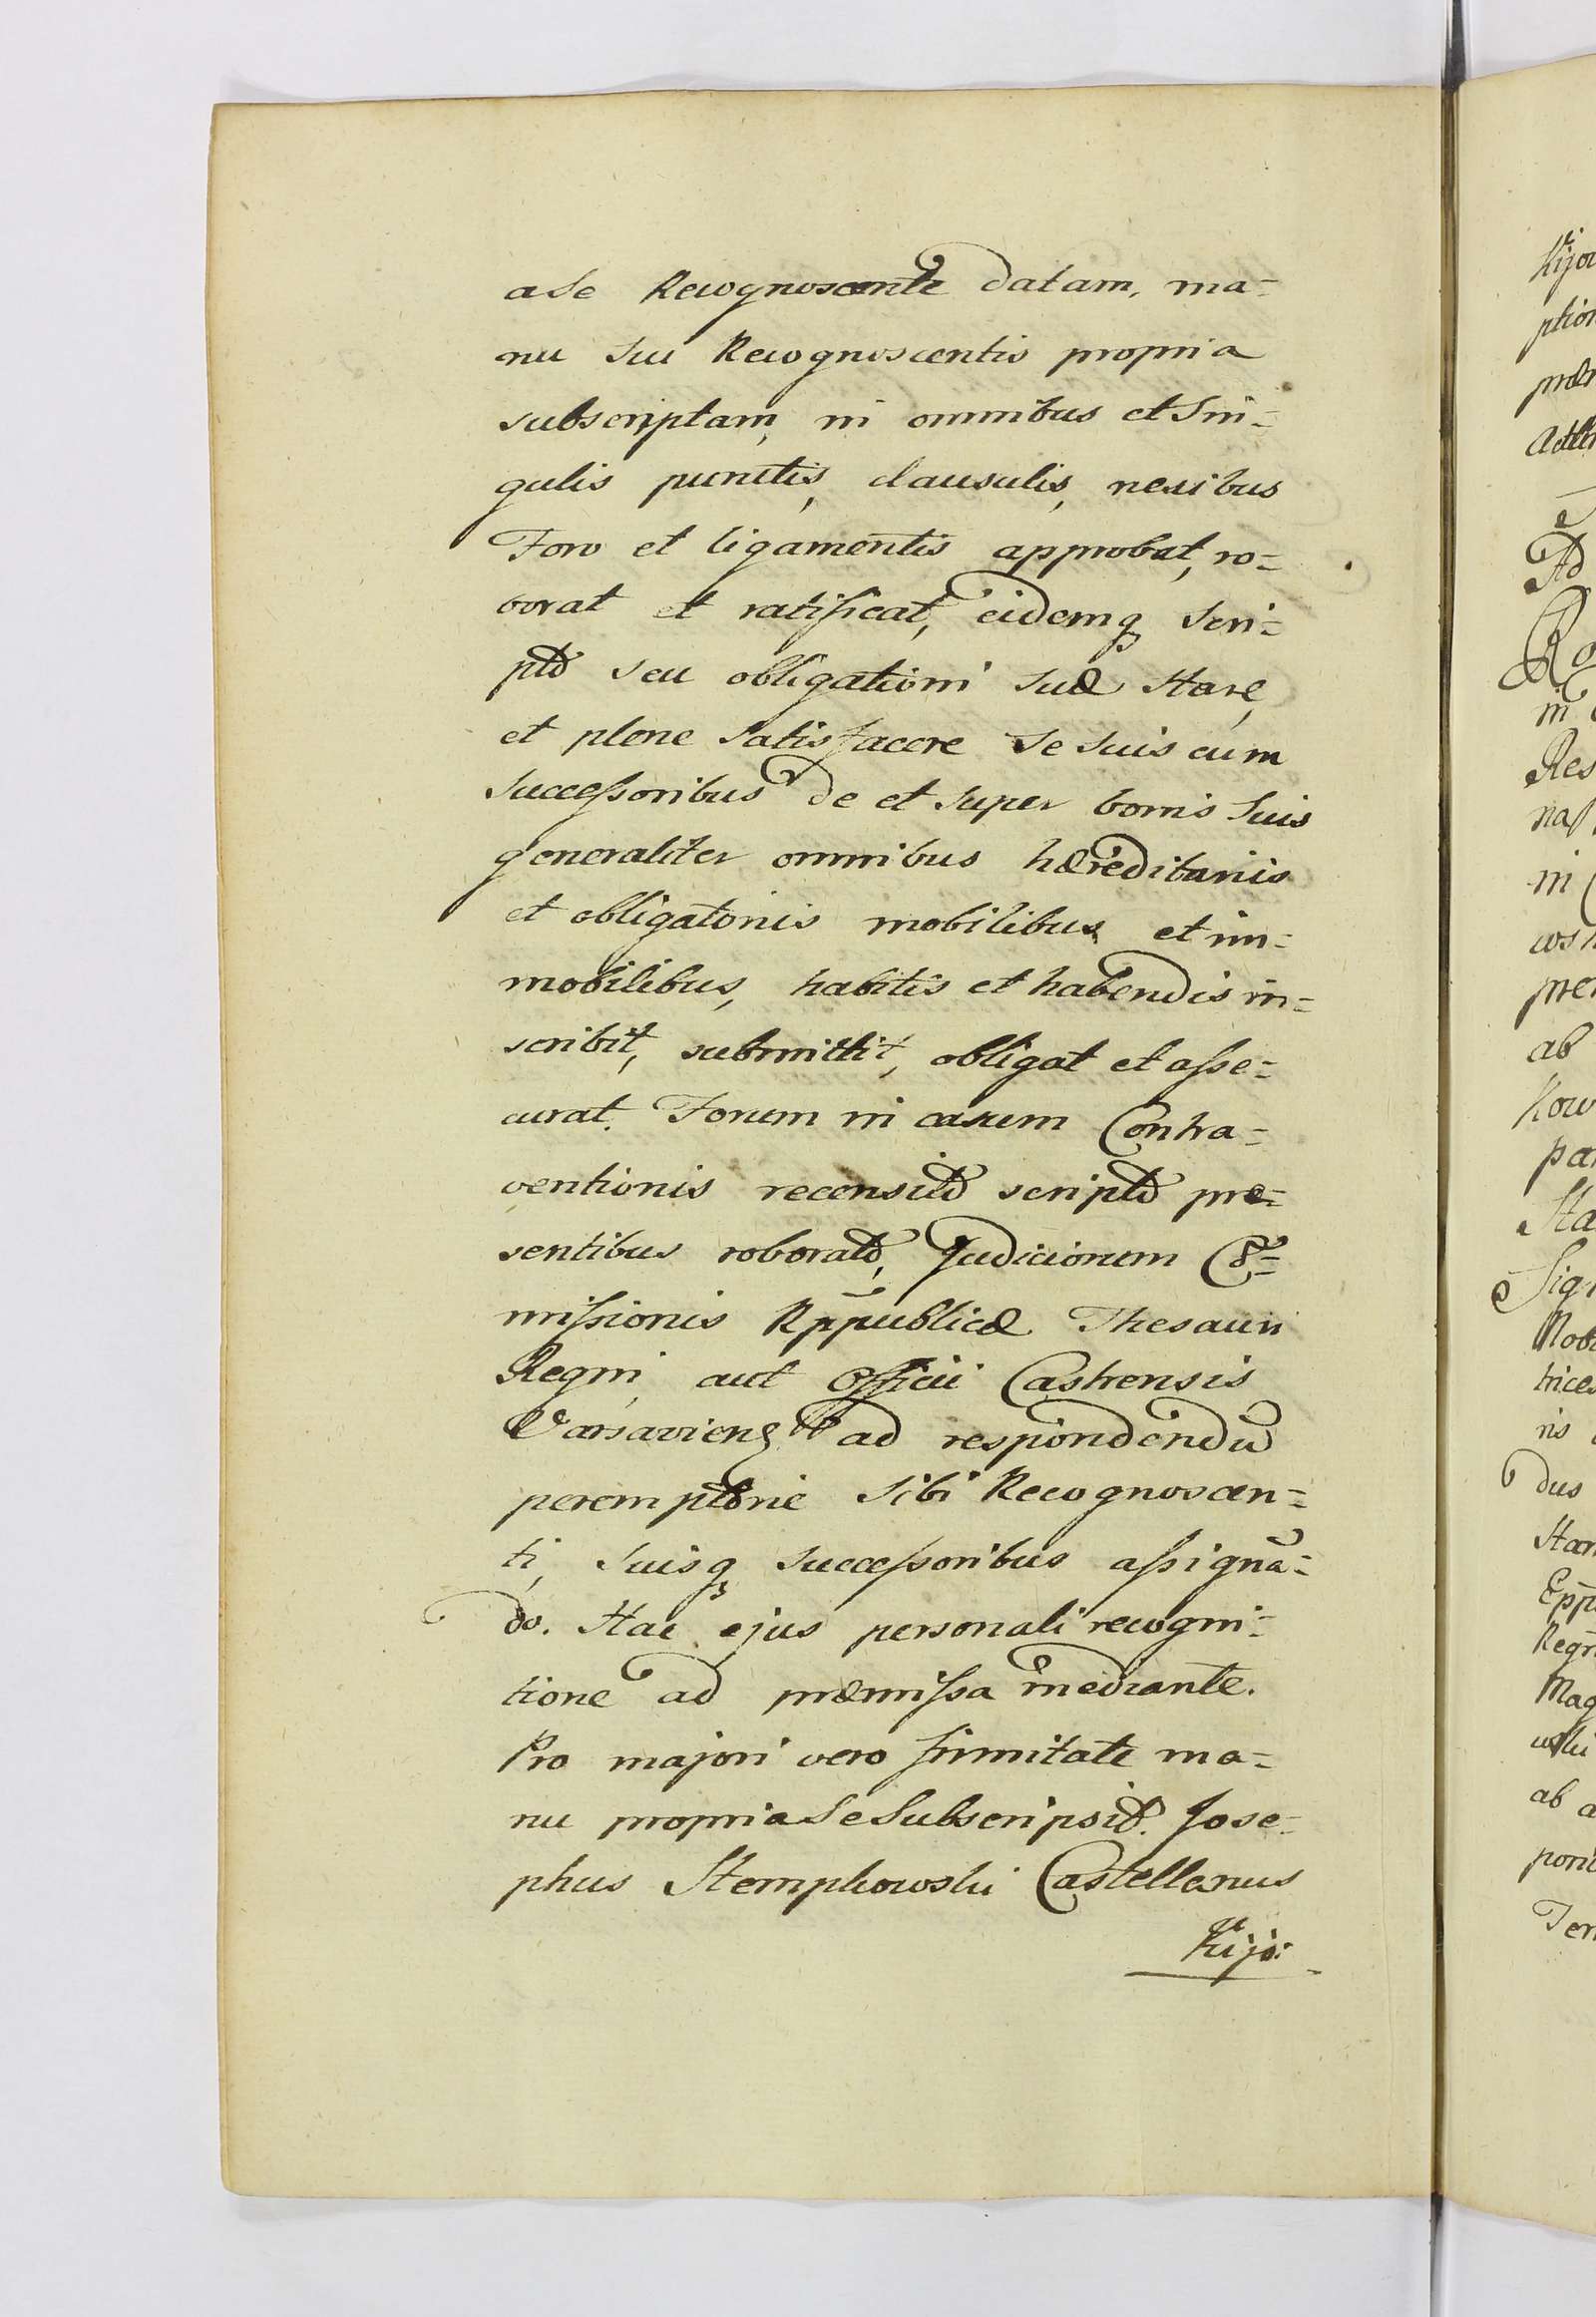 a Se Recognoscente datam, ma=
nu sui Recognoscentis propria
subscriptam, in omnibus et Sin=
gulis punctis, clausulis, nexibus
Foro et ligamentis approbat, ro=
borat et ratificat, eidemq, Scri=
pto seu obligationi suæ stare,
et plene Satisfacere Se Suis cum
Successoribus de et super bonis Suis
generaliter omnibus hæreditariis
et obligatoriis mobilibus et im=
mobilibus, habitis et habendis in=
scribit, submittit, obligat et asse=
curat. Forum in casum Contra=
ventionis recensiti scripti præ=
sentibus roborati, Judiciorum Co=
missionis Rppublicæ Thesauri
Regni, aut Officii Castrensis
Varsaviens ad respondendū
peremptorie Sibi Recognoscen=
ti, Suisq, Successoribus assignā=
do. Hac ejus personali recogni=
tione ad præmissa mediante.
Pro majori vero firmitate ma=
nu propria Se Subscripsit. Jose=
phus Stempkowski Castellanus
Kijo:
Kijov
ption
Ad
in
Res
in
ab
Kow
pa
Sta
Sig
Nob
trices
ris
dus
Star
Epp
Regn
Mag
ab a
Ter